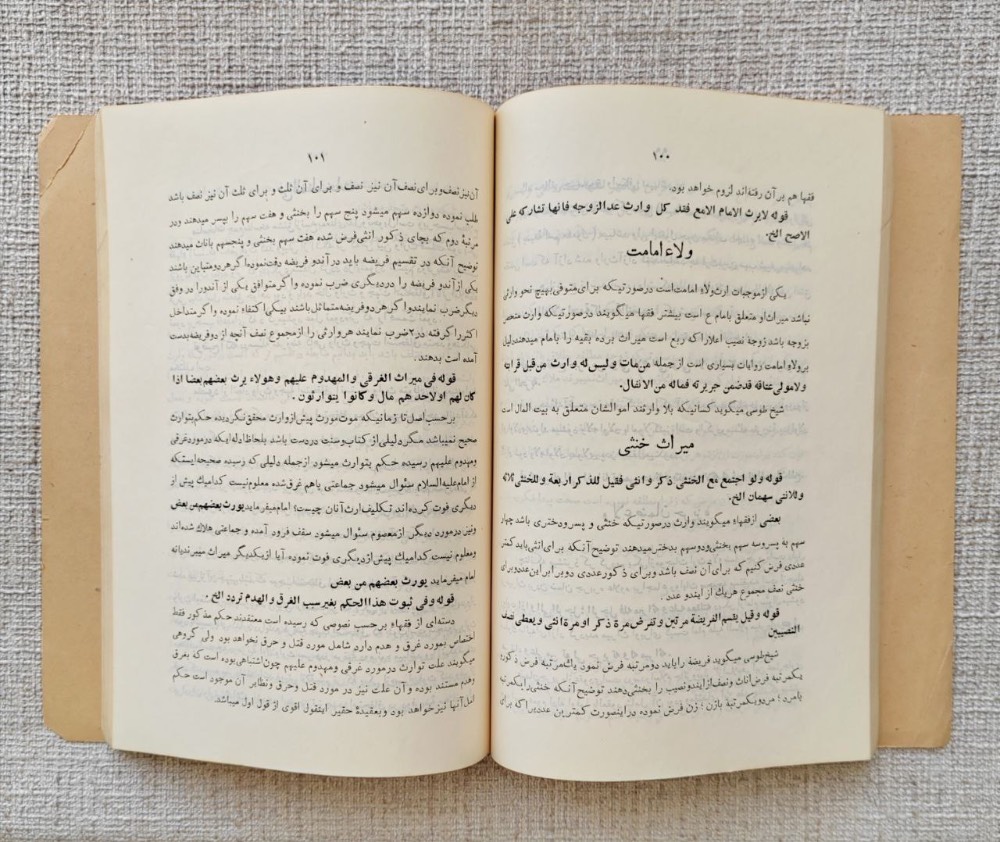 ۱۰۰
فقها هم بر آن رفته‌اند لزوم خواهد بود.
قوله لایرث الامام الامع فقد کل وارث عدالزوجه فانها تشارکه علی
الاصح الخ.
ولاء امامت
یکی از موجبات ارث ولاء امامت است در صورتیکه برای متوفی بهیچ نحو وارثی
نباشد میراث او متعلق بامام ع است بیشتر فقها میگویند در صورتیکه وارث منحصر
بزوجه باشد زوجة نصیب اعلارا که ربع است میراث برده بقیه را بامام میدهند دلیل
بر ولاء امامت روایات بسیاری است از جمله من مات و لیس له وارث من قبل قرابته
ولا مولی عتاقه قد ضمن جریرته فماله من الانفال.
شیخ طوسی میگوید کسانیکه بلا وارثند اموالشان متعلق به بیت المال است
میراث خنثی
قوله ولو اجتمع مع الخنثی ذکر و انثی فقیل للذکر اربعة و للخنثی ثلاثه
وللانثی سهمان الخ.
بعضی از فقهاء میگویند وارث در صورتیکه خنثی و پسر و دختری باشد چهار
سهم به پسر و سه سهم بخنثی و دو سهم بدختر میدهند توضیح آنکه برای انثی باید کمتر
عددی فرض کنیم که برای آن نصف باشد و برای ذکور عددی دو برابر این عدد و برای
خنثی نصف مجموع هر یک از ایندو عدد.
قوله وقیل یقسم الفریضة مرتین و تفرض مرة ذکر او مرة انثی و یعطی نصف
النصیبین
شیخ طوسی میگوید فریضة را باید دو مرتبه فرض نمود یک مرتبه فرض ذکور و
یکمرتبه فرض اناث و نصف از ایندو نصیب را بخنثی دهند توضیح آنکه خنثی را یکمرتبه
بامرد؛ مرد و یکمرتبة بازن؛ زن فرض نموده در اینصورت کمترین عددیرا که برای
۱۰۱
آن نیز نصف و برای نصف آن نیز نصف و برای آن ثلث و برای ثلث آن نیز نصف باشد
طلب نموده دوازده سهم میشود پنج سهم را بخنثی و هفت سهم را بپسر میدهند و در
مرتبة دوم که بجای ذکور انثی فرض شده هفت سهم بخنثی و پنجسهم باناث میدهند
توضیح آنکه در تقسیم فریضه باید در آندو فریضه دقت نمود اگر هر دو متباین باشند
یکی از آندو فریضه را در دیگری ضرب نموده و اگر متوافق یکی از آندورا در وفق
دیگر ضرب نمایند و اگر هر دو فریضه متماثل باشند بیکی اکتفاء نموده و اگر متداخل
اکثر را گرفته در ۲ ضرب نمایند هر وارثی را از مجموع نصف آنچه از دو فریضه بدست
آمده است بدهند.
قوله فی میراث الغرقی و المهدوم علیهم و هولاء یرث بعضهم بعضا اذا
کان لهم او لاحدهم مال و کانوا یتوارثون.
بر حسب اصل تا زمانیکه موت مورث پیش از وارث محقق نگردیده حکم بتوارث
صحیح نمیباشد مگر دلیلی از کتاب و سنت در دست باشد بلحاظ ادله اینکه در مورد غرقی
و مهدوم علیهم رسیده حکم بتوارث میشود از جمله دلیلی که رسیده صحیحه ایستکه
از امام علیه السلام سئوال میشود جماعتی باهم غرق شده معلوم نیست کدامیک پیش از
دیگری فوت کرده‌اند تکلیف ارث آنان چیست؛ امام میفرماید یورث بعضهم من بعض
و نیز در مورد دیگر از معصوم سئوال میشود سقف فرود آمده و جماعتی هلاک شده‌اند
و معلوم نیست کدامیک پیش از دیگری فوت نموده آیا از یکدیگر میراث میبرند یا نه
امام میفرماید یورث بعضهم من بعض
قوله و فی ثبوت هذا الحکم بغیر سبب الغرق و الهدم تردد الخ.
دسته‌ای از فقهاء بر حسب نصوصی که رسیده است معتقدند حکم مذکور فقط
اختصاص بمورد غرق و هدم دارد شامل مورد قتل و حرق نخواهد بود ولی گروهی
میگویند علت توارث در مورد غرقی و مهدوم علیهم چون اشتباهی بوده است که بغرق
و هدم مستند بوده و آن علت نیز در مورد قتل و حرق و نظایر آن موجود است حکم
شامل آنها نیز خواهد بود و بعقیدهٔ حقیر اینقول اقوی از قول اول میباشد.